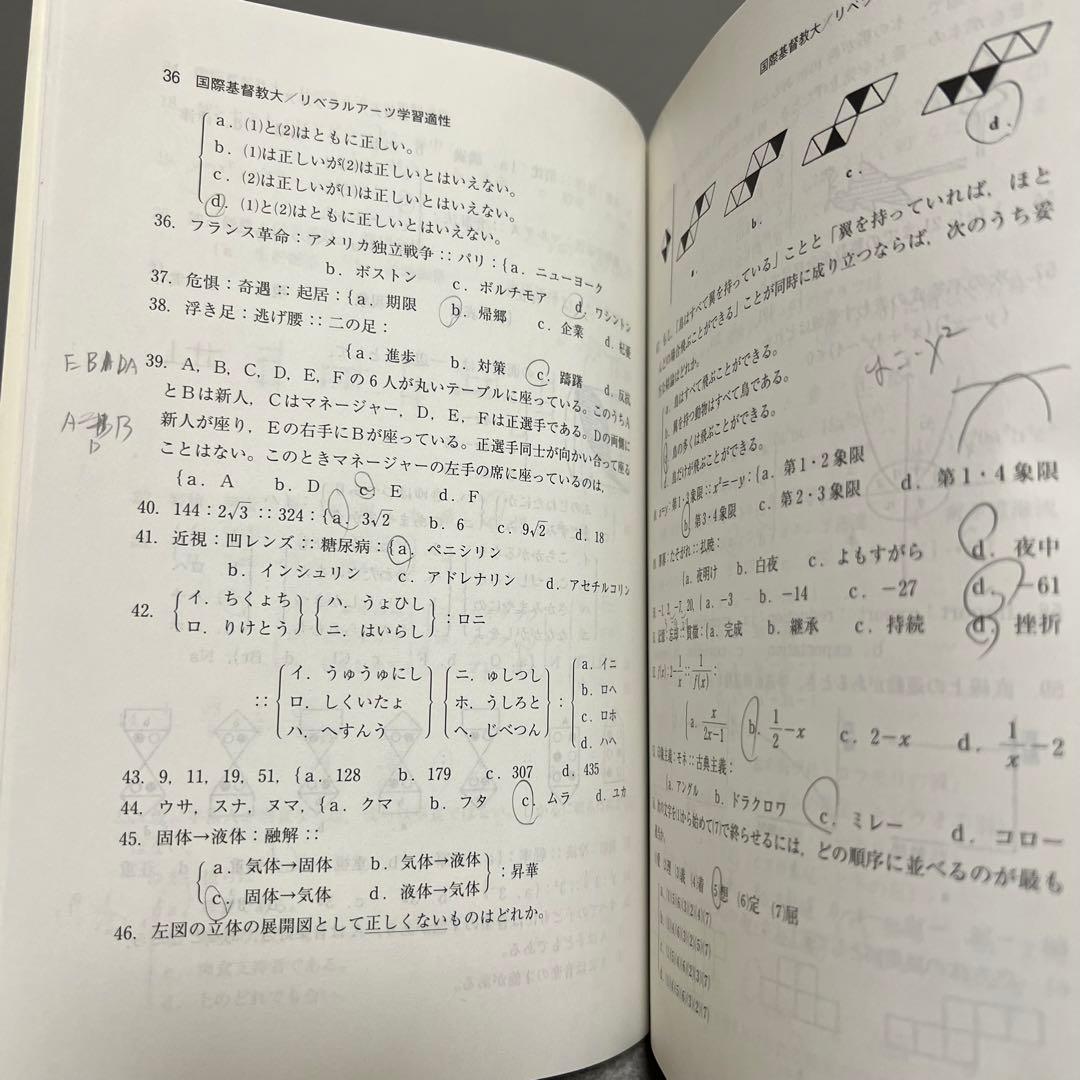 36 国際基督教大／リベラルアーツ学習適性
a．(1)と(2)はともに正しい。
b．(1)は正しいが(2)は正しいとはいえない。
c．(2)は正しいが(1)は正しいとはいえない。
d．(1)と(2)はともに正しいとはいえない。
36. フランス革命：アメリカ独立戦争：：パリ：{a．ニューヨーク
b．ボストン c．ボルチモア d．ワシントン
37. 危惧：奇遇：：起居：{a．期限 b．帰郷 c．企業 d．枯
38. 浮き足：逃げ腰：：二の足：
{a．進歩 b．対策 c．躊躇 d．反抗
EB DA
39. A，B，C，D，E，Fの6人が丸いテーブルに座っている。このうちA
とBは新人，Cはマネージャー，D，E，Fは正選手である。Dの両側に
A B
D
新人が座り，Eの右手にBが座っている。正選手同士が向かい合って座る
ことはない。このときマネージャーの左手の席に座っているのは，
{a．A b．D c．E d．F
40. 144：2√3：：324：{a．3√2 b．6 c．9√2 d．18
41. 近視：凹レンズ：：糖尿病：{a．ペニシリン
b．インシュリン c．アドレナリン d．アセチルコリン
42. {イ．ちくょち ロ．りけとう} {ハ．うょひし ニ．はいらし}：ロニ
：：{イ．うゅうゅにし ロ．しくいたょ ハ．へすんう} {ニ．ゅしつし ホ．うしろと ヘ．じべつん}：{a．イニ b．ロヘ c．ロホ d．ハヘ
43. 9，11，19，51，{a．128 b．179 c．307 d．435
44. ウサ，スナ，ヌマ，{a．クマ b．フタ c．ムラ d．ユカ
45. 固体→液体：融解：：
{a．気体→固体 b．気体→液体
c．固体→気体 d．液体→気体}：昇華
46. 左図の立体の展開図として正しくないものはどれか。
国際基督教大／リベ
a． b． c． d．
「鳥はすべて翼を持っている」ことと「翼を持っていれば，ほと
んどの場合飛ぶことができる」ことが同時に成り立つならば，次のうち妥
当な結論はどれか。
a．鳥はすべて飛ぶことができる。
b．翼を持つ動物はすべて鳥である。
c．鳥の多くは飛ぶことができる。
d．鳥だけが飛ぶことができる。
x=-y²
x=y：第1・3象限：：x²=-y：{a．第1・2象限
b．第3・4象限 c．第2・3象限 d．第1・4象限
：たそがれ：：払暁：
{a．夜明け b．白夜 c．よもすがら d．夜中
-1，2，-7，20，{a．-3 b．-14 c．-27 d．-61
記憶：忘却：：貫徹：{a．完成 b．継承 c．持続 d．挫折
f(x)：2-1/x：：1/f(x)：
{a．x/(2x-1) b．1/2-x c．2-x d．1/x-2
主義：モネ：：古典主義：
{a．アングル b．ドラクロワ c．ミレー d．コロー
の文字を(1)から始めて(7)で終らせるには，どの順序に並べるのが最も
(4)着 (5)想 (6)定 (7)屈
a．(1)(5)(6)(3)(2)(4)(7)
b．(1)(4)(6)(3)(2)(5)(7)
c．(1)(5)(4)(6)(2)(3)(7)
d．(1)(4)(5)(6)(3)(2)(7)